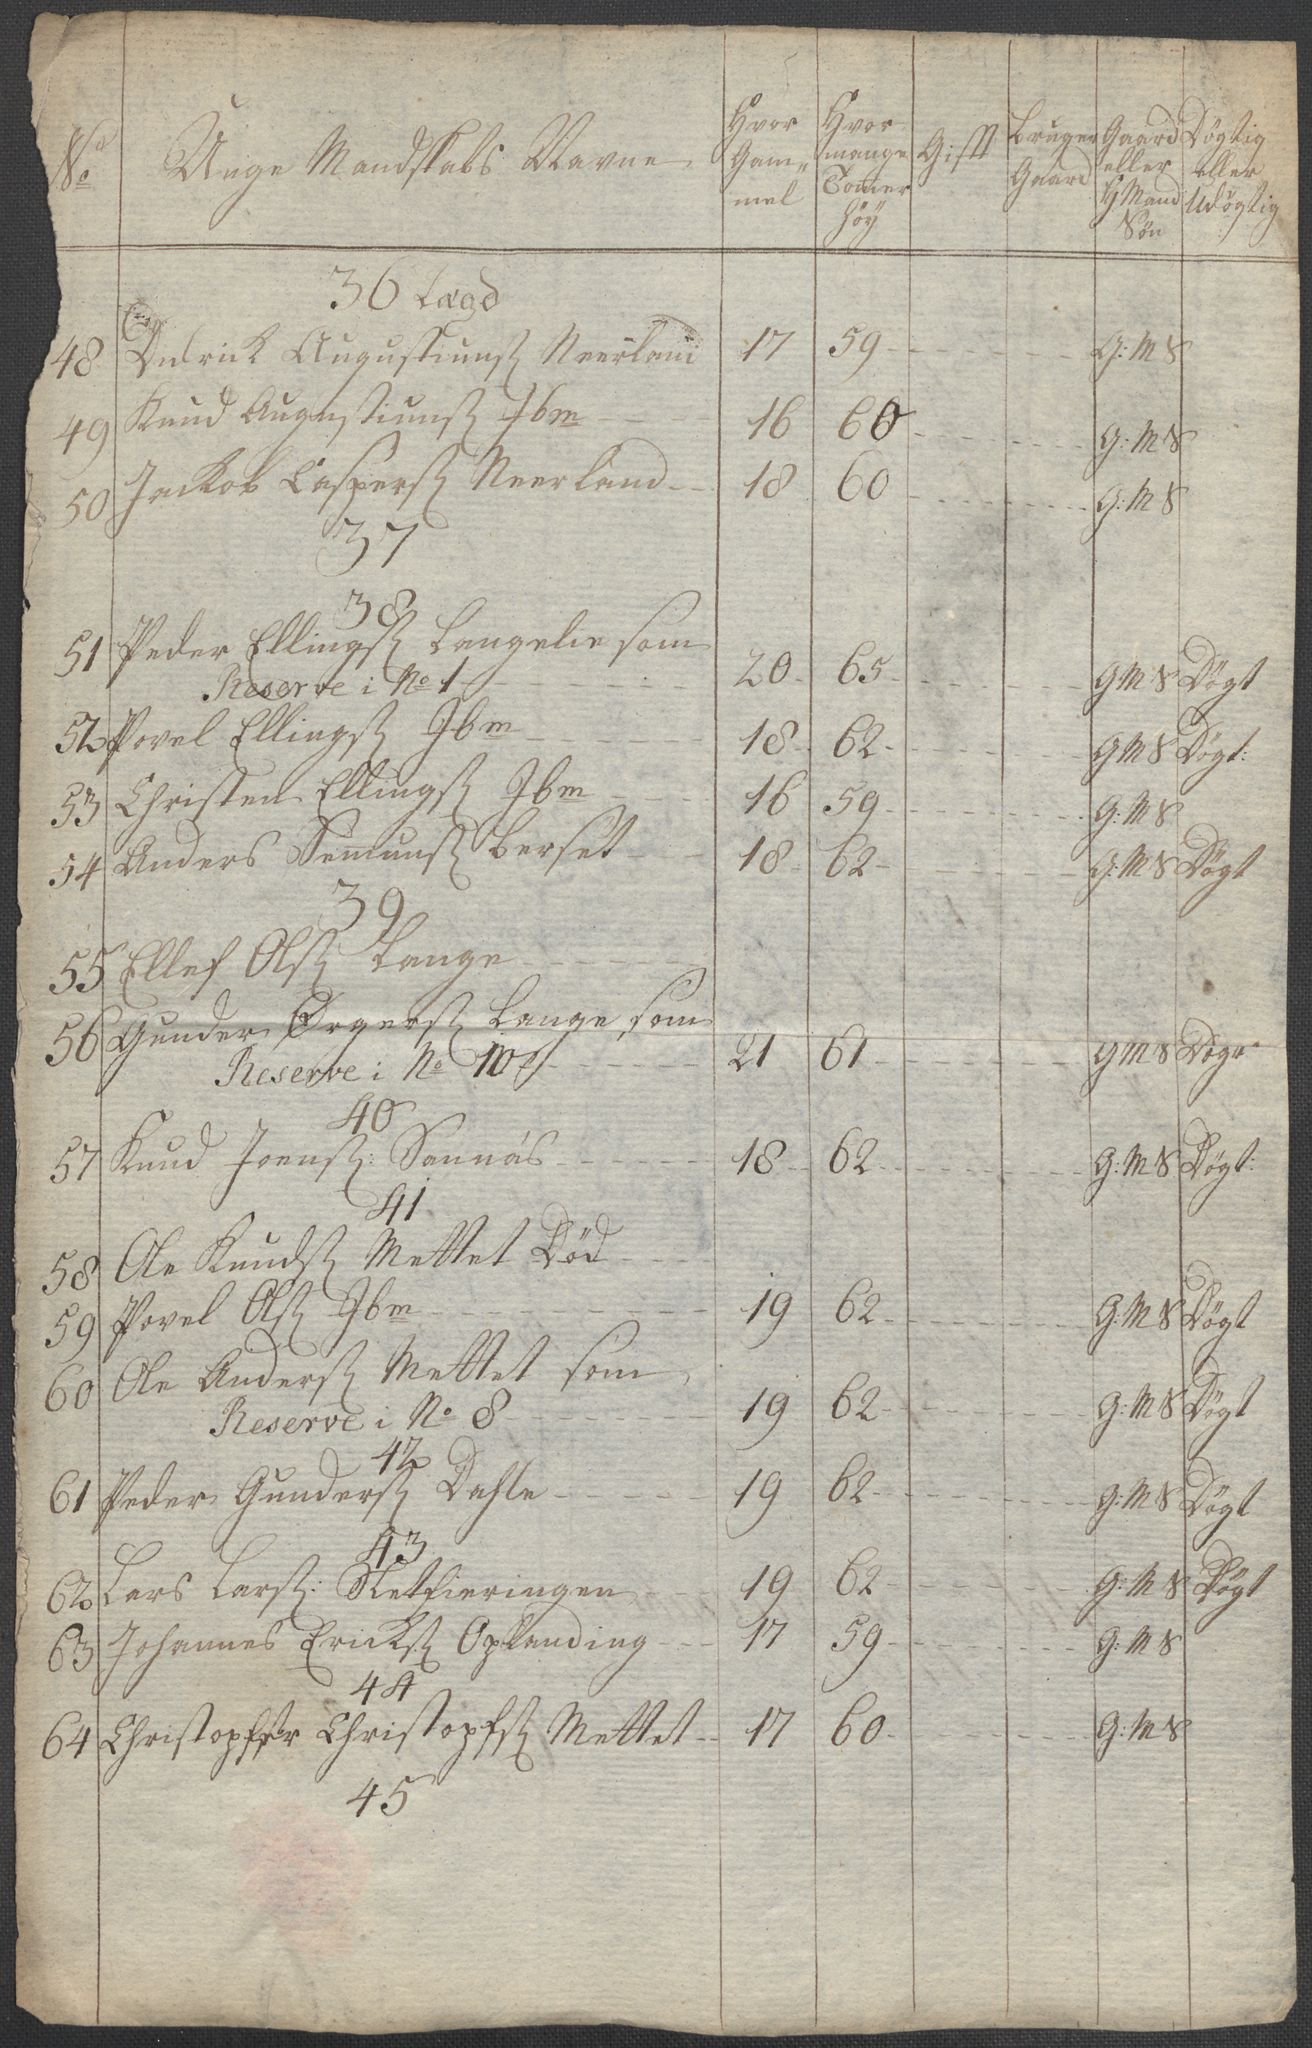 No Unge Mandskabs Navne Hvor Gam„mel Hvor mange Tomer höÿ Gift Bruger Gaard Gaard eller HMand Søn Døgtig eller Udøgtig
36 Lægd
48 Didrick Augustiuns: Neerland 17 59 G:MS
49 Knud Augustiuns: Ibm 16 60 G:MS
50 Jackob Caspers: Neerland 18 60 G:MS
37
38
51 Peder Ellings: Langelie som
Reserve i No 1 20 65 GMS Døgt
52 Povel Ellings: Ibm 18 62 GMS Døgt:
53 Christen Ellings: Ibm 16 59 G:MS
54 Anders Semuns: Berset 18 62 G:MS Døgt
39
55 Ellef Ols: Lange
56 Gunder Ørgers: Lange som
Reserve i No 10 21 61 GMS Døgt
40
57 Knud Joens: Sannäs 18 62 G:MS Døgt:
41
58 Ole Knuds: Mettet Död
59 Povel Ols: Ibm 19 62 G:MS Døgt
60 Ole Anders: Mettet som
Reserve i No 8 19 62 G:MS Døgt
42
61 Peder Gunders: Dahle 19 62 G:MS Døgt
43
62 Lars Lars: Sletfieringen 19 62 G:MS Døgt
63 Johannes Ericks: Oplanding 17 59 G:MS
44
64 Christopffer Christopfs: Mettet 17 60 G:MS
45